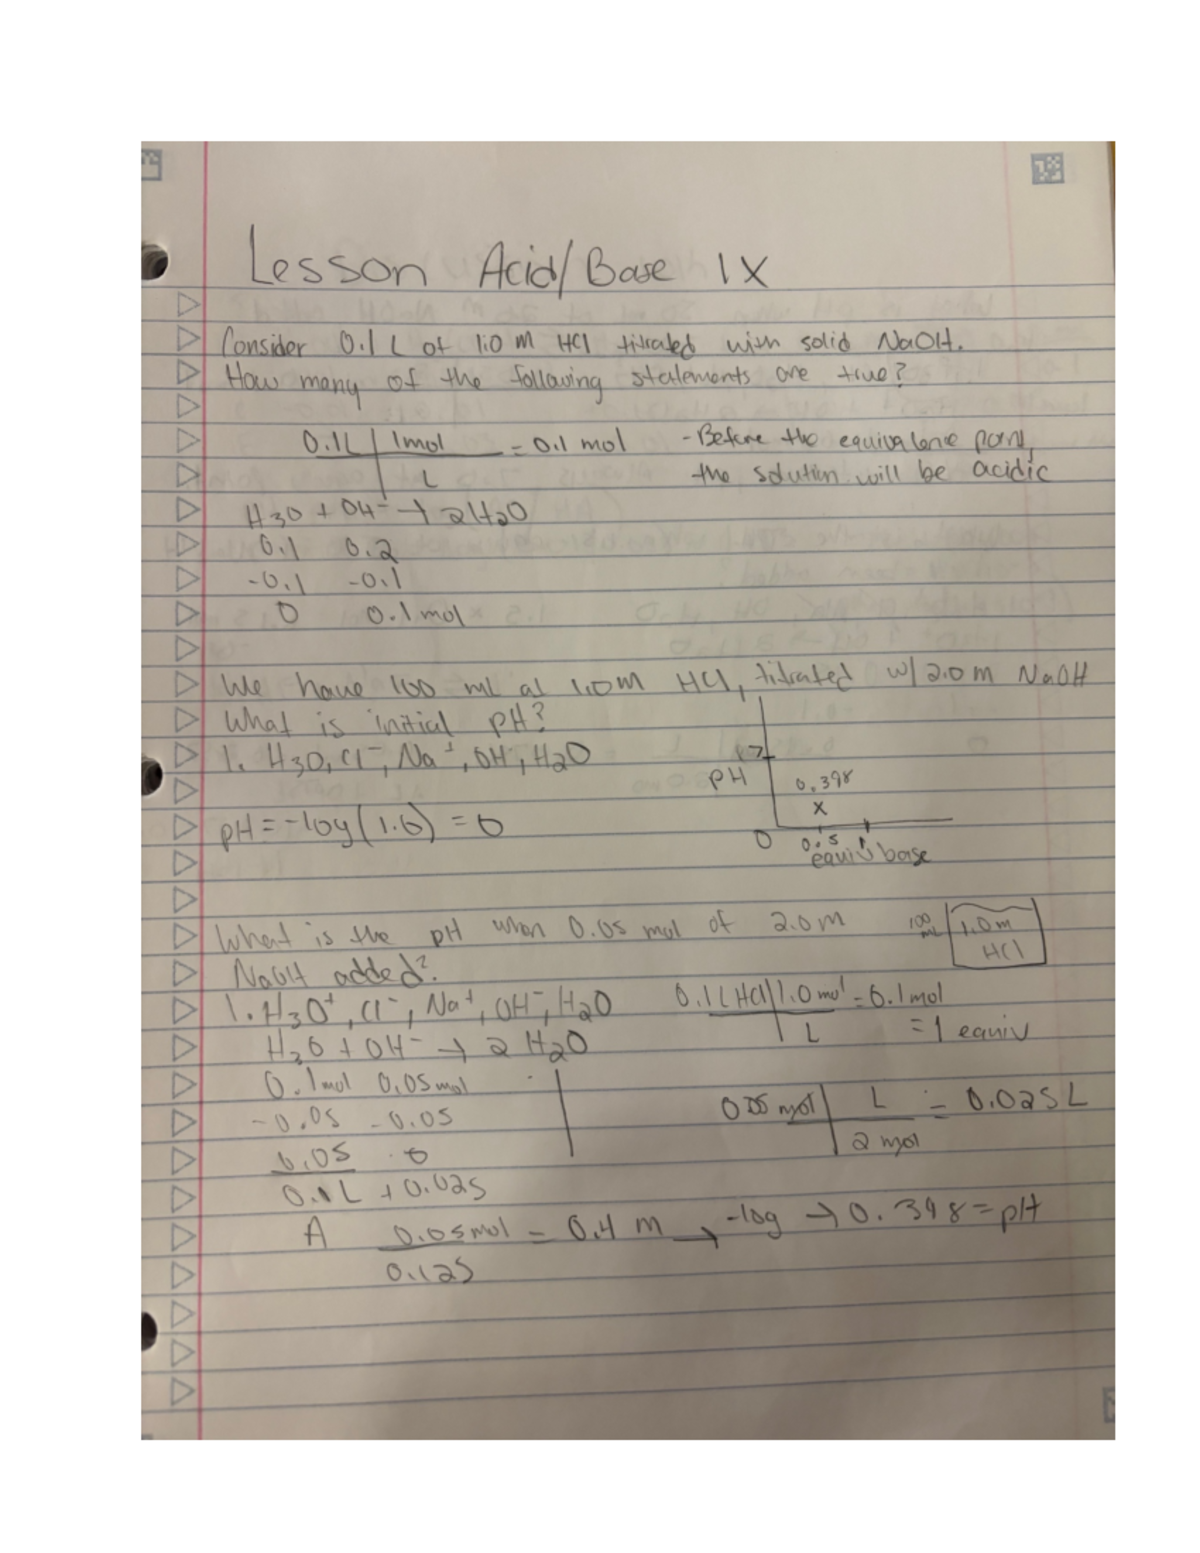 Lesson Acid/Base IX
Consider 0.1 L of 1.0 M HCl titrated with solid NaOH.
How many of the following statements are true?
0.1L | 1mol = 0.1 mol
L
- Before the equivalence point,
the solution will be acidic
H3O + OH- → 2H2O
0.1 0.2
-0.1 -0.1
0 0.1 mol
We have 100 ml at 1.0M HCl, titrated w/ 2.0 m NaOH
What is initial pH?
1. H3O, Cl-, Na+, OH-, H2O
pH = -log(1.0) = 0
7
pH
0.398
x
0 0.5 1
equiv base
What is the pH when 0.05 mol of 2.0 m
NaOH added?
100 mL
1.0 m
HCl
1. H3O+, Cl-, Na+, OH-, H2O
H3O + OH- → 2 H2O
0.1mol 0.05mol
-0.05 -0.05
0.05 0
0.1L + 0.025
0.1L HCl | 1.0 mol = 0.1mol
L = 1 equiv
0.05 mol | L = 0.025 L
2 mol
A 0.05mol = 0.4 m → -log → 0.398 = pH
0.125